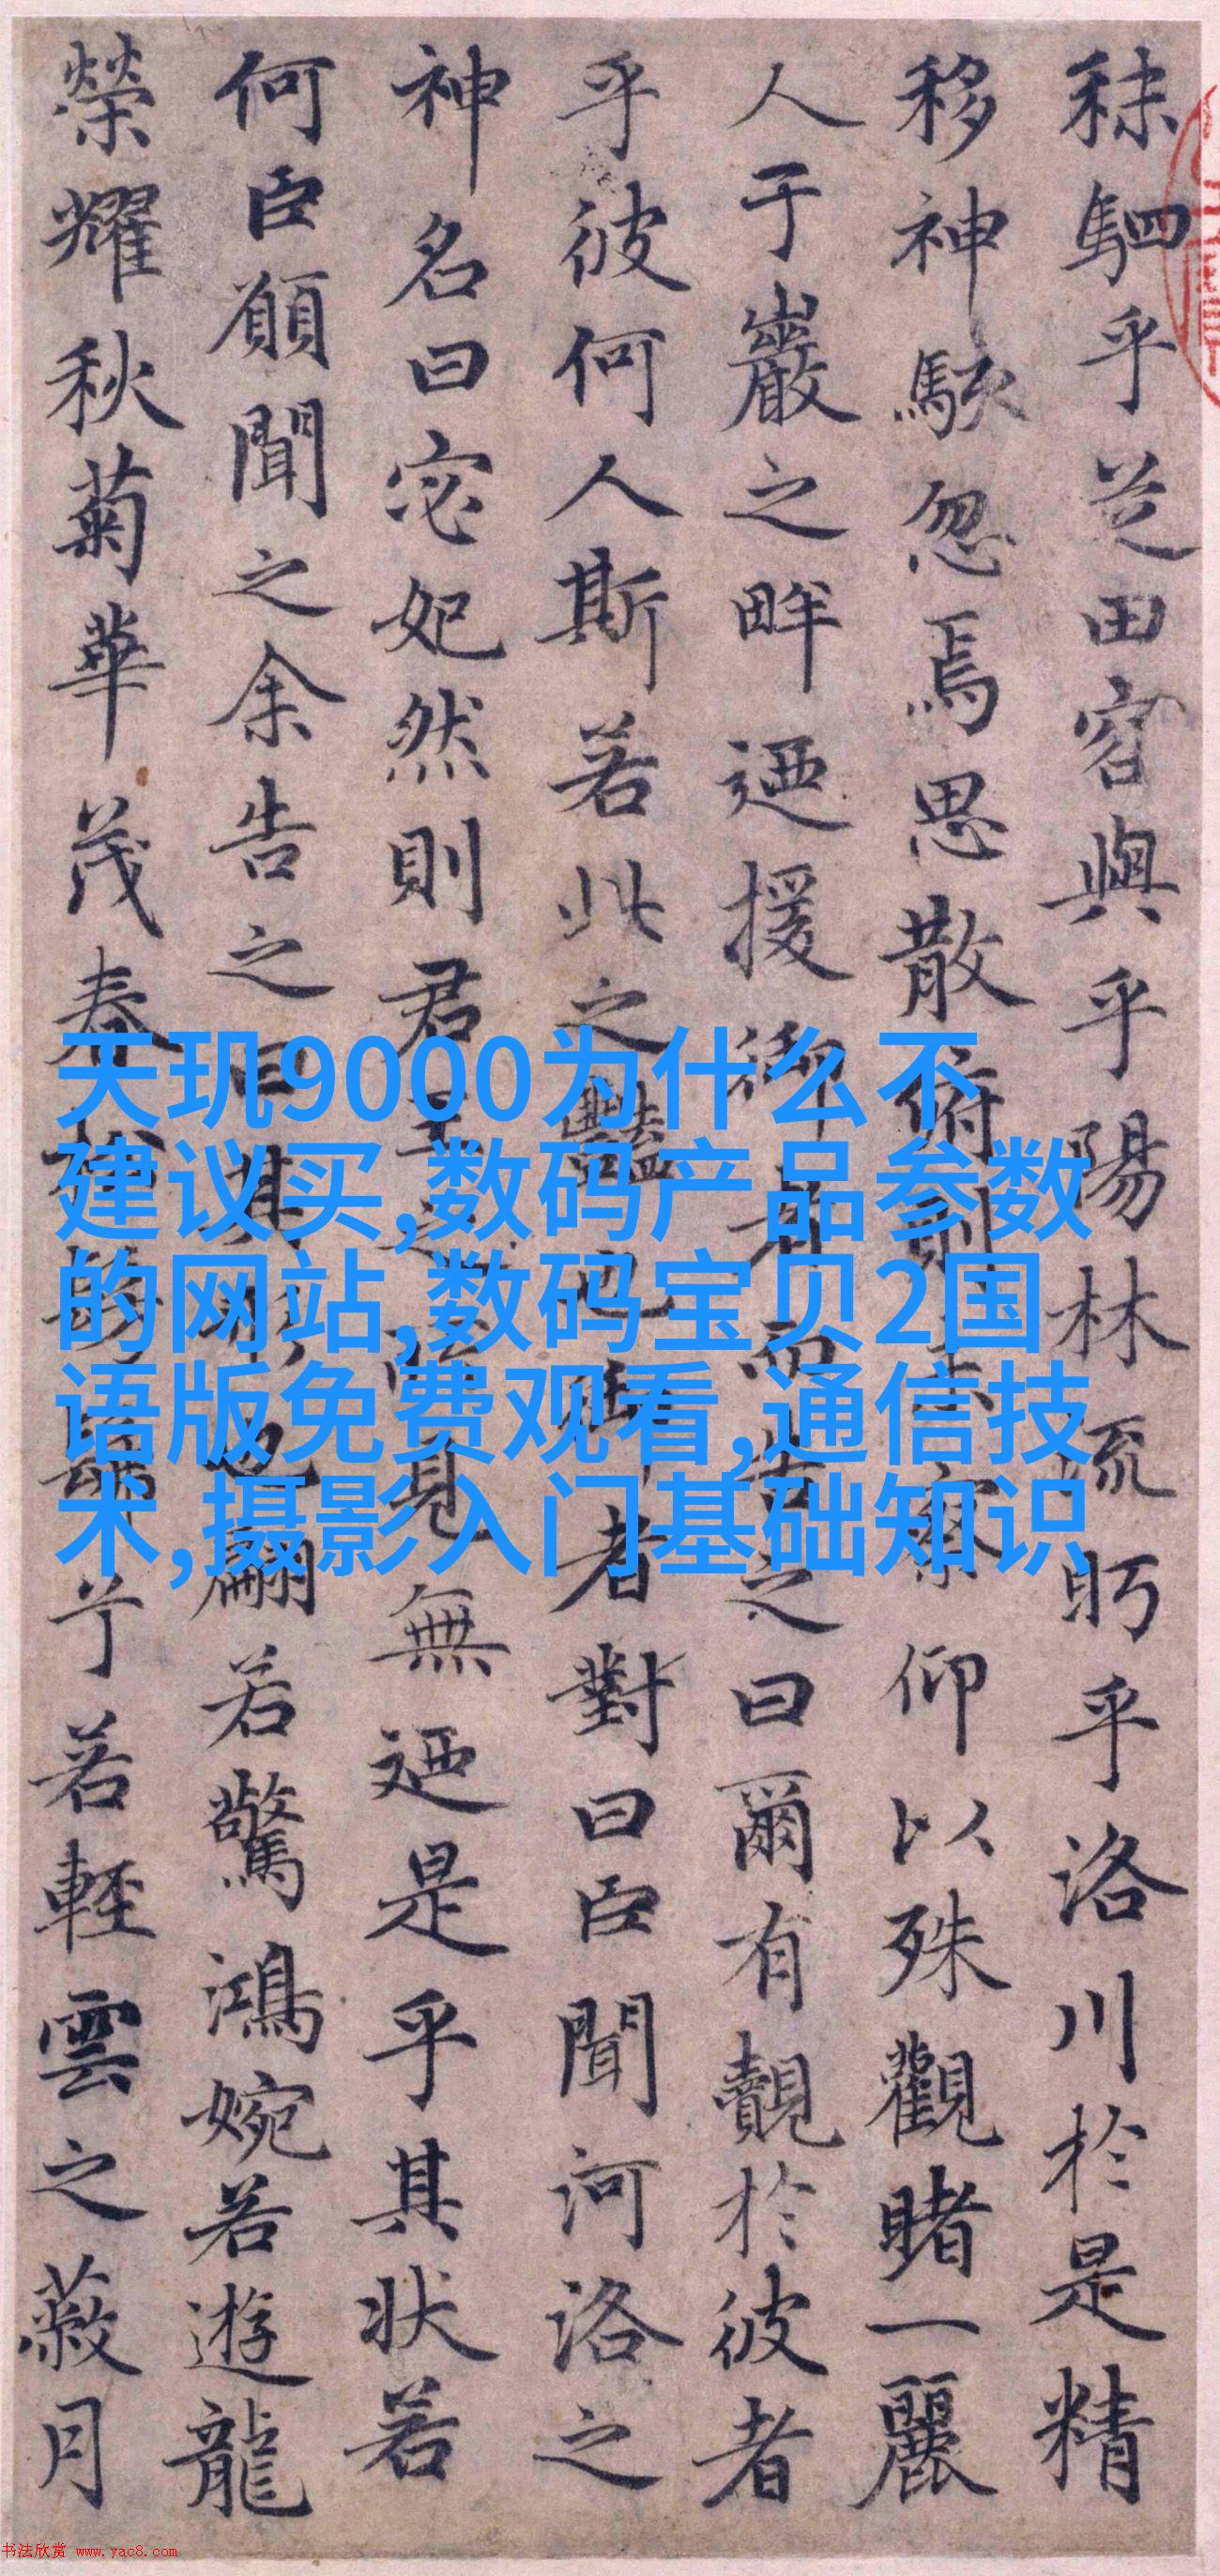 秣駟乎芝田容與乎陽林流眄乎洛川於是精
移神駭忽焉思散俯則未察仰以殊觀睹一麗
人于巖之畔迺援御者而告之曰爾有覿於彼者
乎彼何人斯若此之豔也御者對曰臣聞河洛之
神名曰宓妃然則君王之所見無迺是乎其狀若
何臣願聞之余告之曰其形也翩若驚鴻婉若遊龍
榮耀秋菊華茂春松髣髴兮若輕雲之蔽月
天玑9000为什么不
建议买,数码产品参数
的网站,数码宝贝2国
语版免费观看,通信技
术,摄影入门基础知识
书法欣赏 www.yac8.com